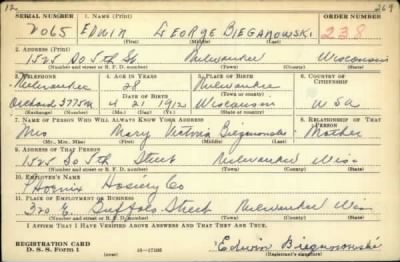 12 269
SERIAL NUMBER 1. NAME (Print) ORDER NUMBER
2065 EDWIN GEORGE BIEGANOWSKI 238
(First) (Middle) (Last)
2. ADDRESS (Print)
1525 So 5th St. Milwaukee Wisconsin
(Number and street or R. F. D. number) (Town) (County) (State)
3. TELEPHONE 4. AGE IN YEARS 5. PLACE OF BIRTH 6. COUNTRY OF CITIZENSHIP
Milwaukee 28 Milwaukee
DATE OF BIRTH (Town or county)
Orchard 3775M 4 21 1912 Wisconsin USA
(Exchange) (Number) (Mo.) (Day) (Yr.) (State or country)
7. NAME OF PERSON WHO WILL ALWAYS KNOW YOUR ADDRESS 8. RELATIONSHIP OF THAT PERSON
Mrs Mary Bieganowski Mother
(Mr., Mrs., Miss) (First) (Middle) (Last)
9. ADDRESS OF THAT PERSON
1525 So 5th Street Milwaukee Wis
(Number and street or R. F. D. number) (Town) (County) (State)
10. EMPLOYER'S NAME
Phoenix Hosiery Co
11. PLACE OF EMPLOYMENT OR BUSINESS
320 E. Buffalo Street Milwaukee Wis
(Number and street or R. F. D. number) (Town) (County) (State)
I AFFIRM THAT I HAVE VERIFIED ABOVE ANSWERS AND THAT THEY ARE TRUE.
REGISTRATION CARD
D. S. S. Form 1 (over) Edwin Bieganowski
(Registrant's signature)